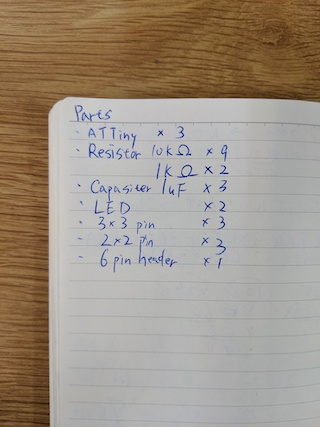 Parts
· ATTiny × 3
· Resistor 10kΩ × 9
1kΩ × 2
· Capasiter 1uF × 3
· LED × 2
· 3×3 pin × 3
- 2×2 pin × 3
- 6 pin header × 1